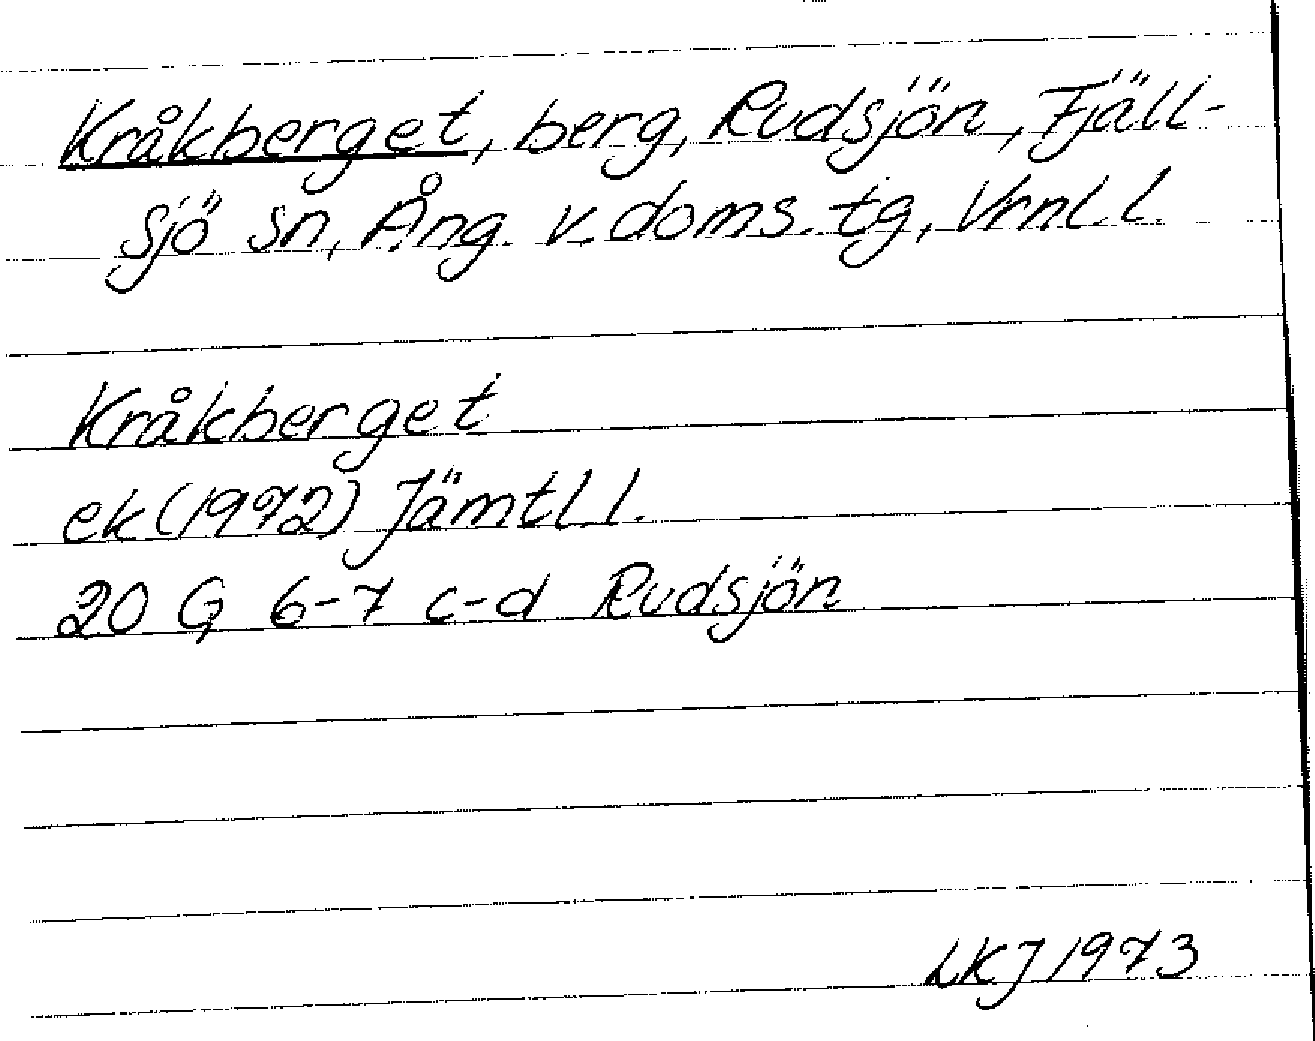 Kråkberget, berg, Rudsjön, Fjäll-
sjö sn, Ång. v. doms. tg, Vrnl. l.
Kråkberget
ek (1972) Jämtl l.
20 G 6-7 c-d Rudsjön
LKJ 1973